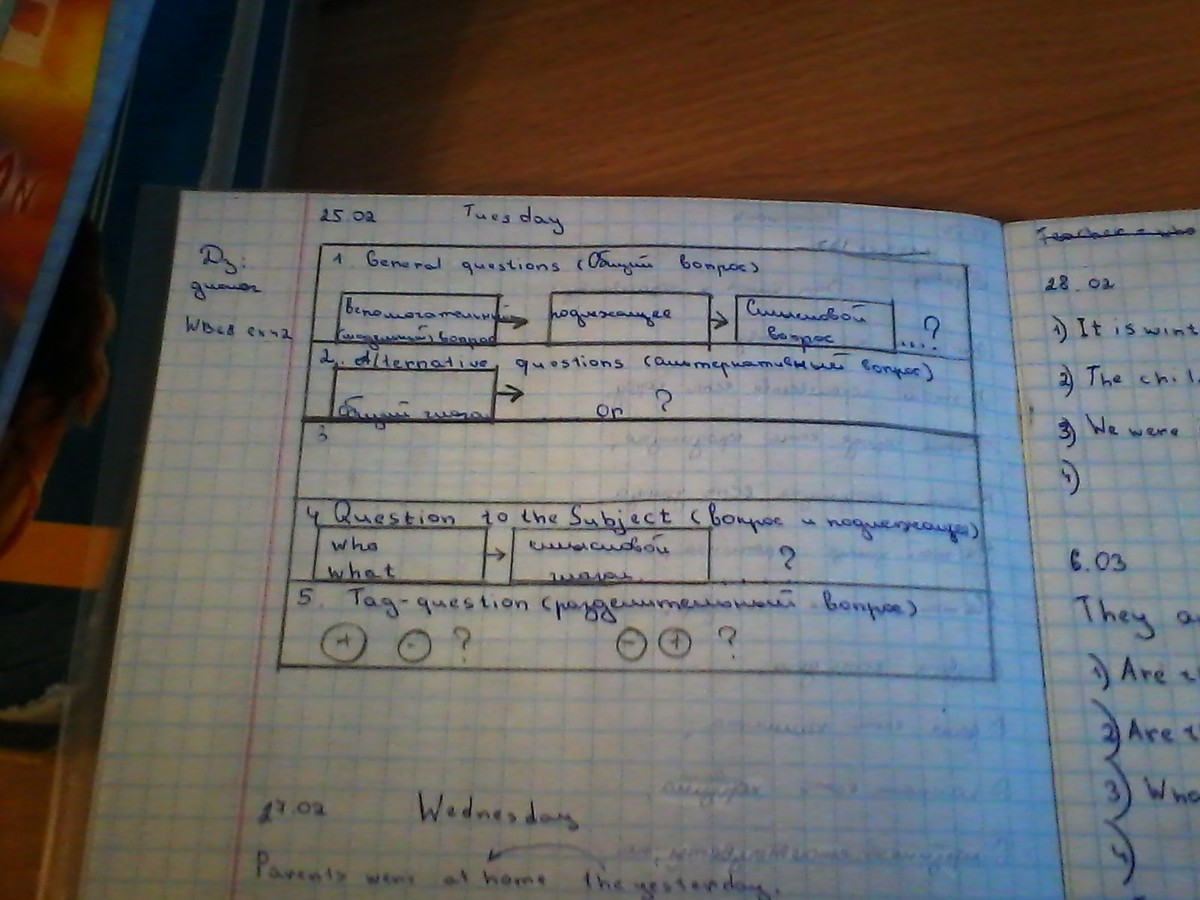 25.02 Tuesday
Дз:
диалог
1. General questions (Общий вопрос)
вспомогательный
подлежащее
Смысловой
вопрос
....?
2. Alternative questions (альтернативный вопрос)
общий
or ?
3
4 Question to the Subject (вопрос к подлежащему)
who
what
смысловой
глагол
?
5. Tag-question (разделительный вопрос)
+ - ? - + ?
27.02 Wednesday
Parents were at home the yesterday.
28.02
1) It is wint
2) The chil
3) We were
4)
6.03
They a
1) Are t
2) Are t
3) Wha
4)